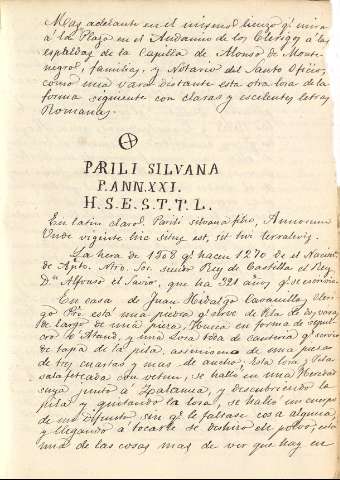 Mas adelante en el mismo lienzo qᵉ mira
à la Plaza en el Andamio de los Clerigos à las
espaldas de la Capilla de Alonso de Monte-
negrol, familias, y Notario del Santo Oficio,
como una vara distante esta otra losa de la
forma siguiente con claras y escelentes letras
Romanas.
PARILI SILVANA
P. ANN. XXI.
H. S. E. S. T. T. L.
En latin claro. Parili silvana filio, Annorum
Unde viginte hic situs est, sit tivi terralevis.
La hera de 1308 qᵉ hacen 1270 de el Nacimᵗᵒ
de Xpto. Ntro. Sor. siendo Rey de Castilla el Rey
Dⁿ Alfonso el Savio, que ha 321 años qᵉ se escrivio
En casa de Juan Hidalgo Cavanillas Cleri-
go Pro. está una piedra qᵉ sirve de Pila de dos varas
de largo de una pieza, hueca en forma de sepul-
cro ò Ataud, y una Losa toda de canteria qᵉ servia
de tapa de la pila, asimismo de una pieza
de tres cuartas y mas de ancho; Esta losa, y Pila
se halló en una Heredad
suya junto à Zalamea, y descubriendo la
pila y quitando la losa, se halló un cuerpo
de un difunto sin qᵉ le faltase cosa alguna,
y llegando à tocarle se deshizo en polvo; esto
una de las cosas mas de ver que hay en